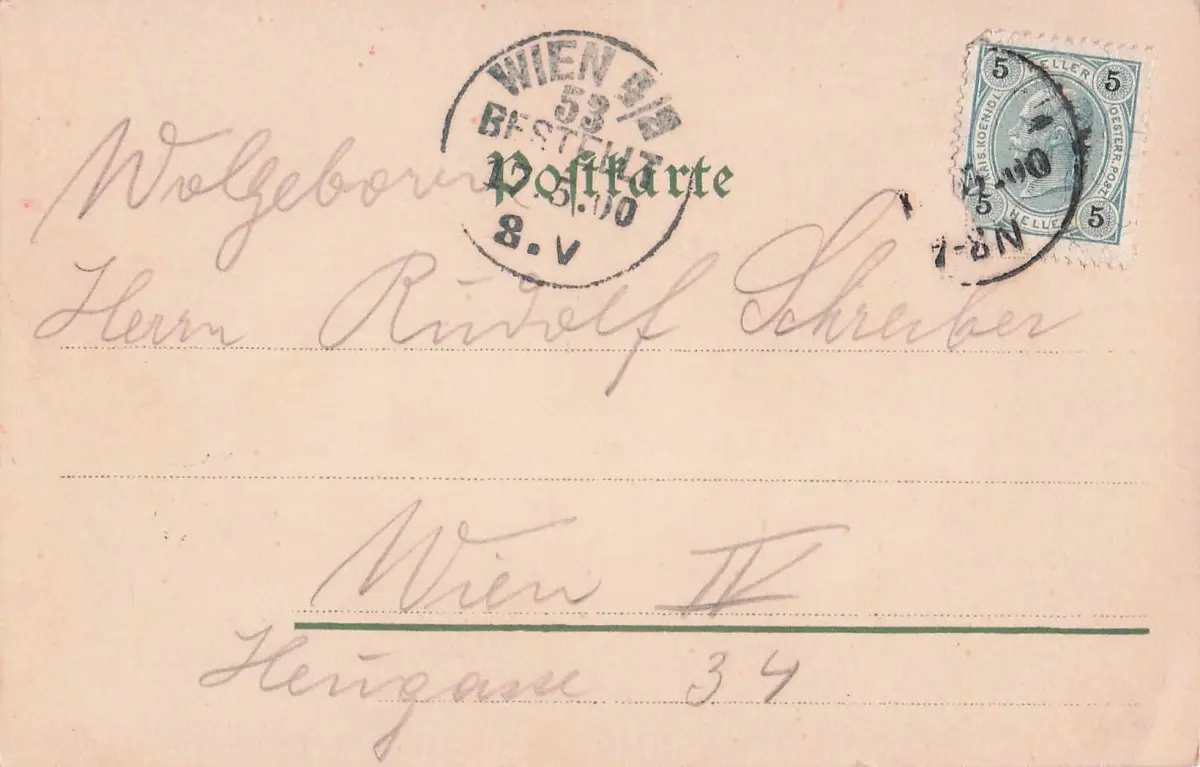 WIEN 4/2
53
BESTELLT
5.00
8.V
Postkarte
5 HELLER 5
KAIS. KOENIGL. OESTERR. POST.
5 HELLER 5
7-8N
Wolgeboren
Herrn Rudolf Schreiber
Wien IV
Heugasse 34